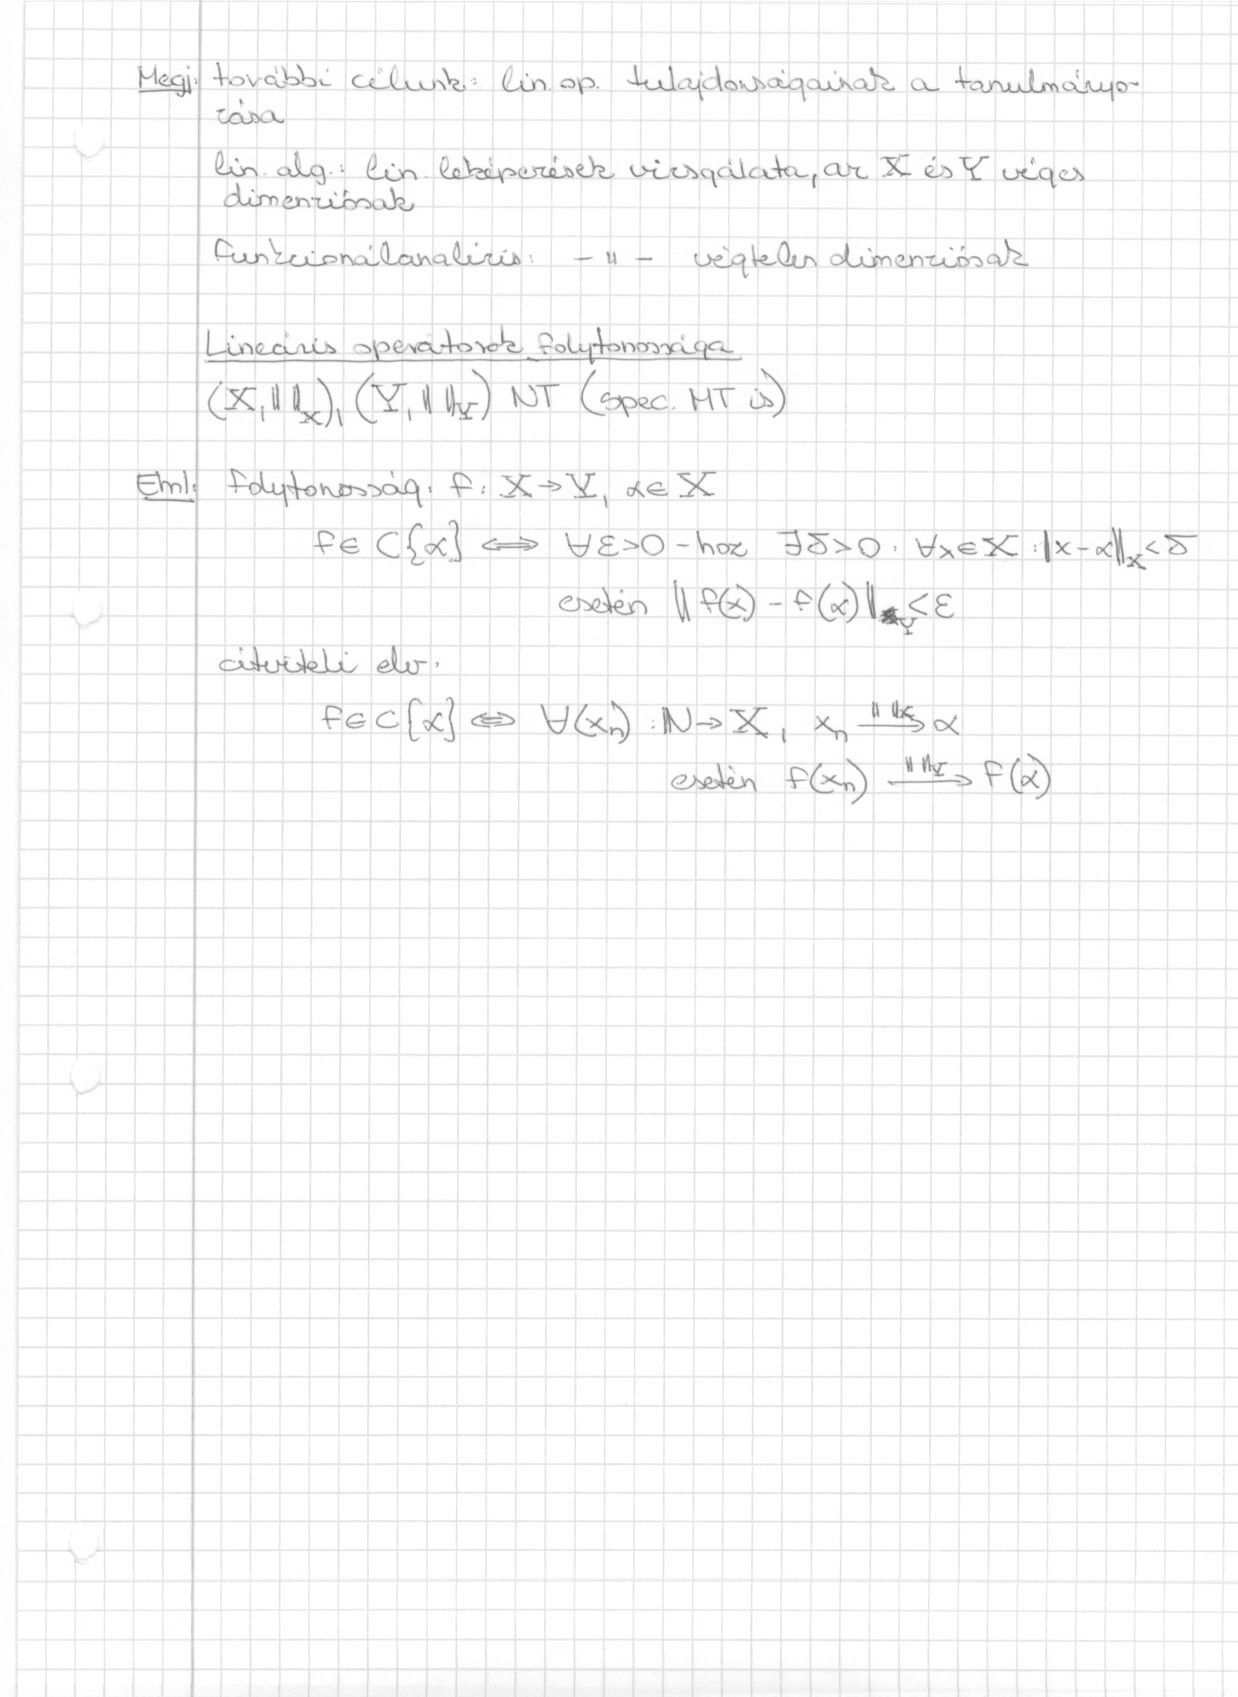 Megj: további célunk: lin. op. tulajdonságainak a tanulmányo-
zása
lin. alg.: lin. leképezések vizsgálata, az X és Y véges
dimenziósak
funkcionálanalízis: - " - végtelen dimenziósak
Lineáris operátorok folytonossága
(X, || ||_X), (Y, || ||_Y) NT (spec. MT is)
Eml: folytonosság: f: X → Y, α ∈ X
f ∈ C{α} ⟺ ∀ε>0-hoz ∃δ>0: ∀x∈X: ||x-α||_X < δ
esetén ||f(x) - f(α)||_Y < ε
átviteli elv:
f ∈ C{α} ⟺ ∀(x_n): ℕ → X, x_n →^{|| ||_X} α
esetén f(x_n) →^{|| ||_Y} f(α)